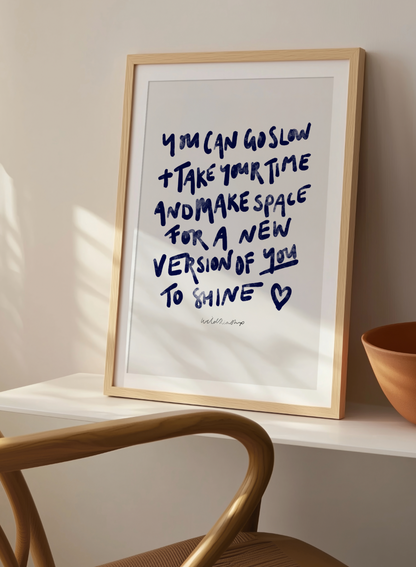 YOU CAN GO SLOW
+ TAKE YOUR TIME
AND MAKE SPACE
FOR A NEW
VERSION OF YOU
TO SHINE ♡